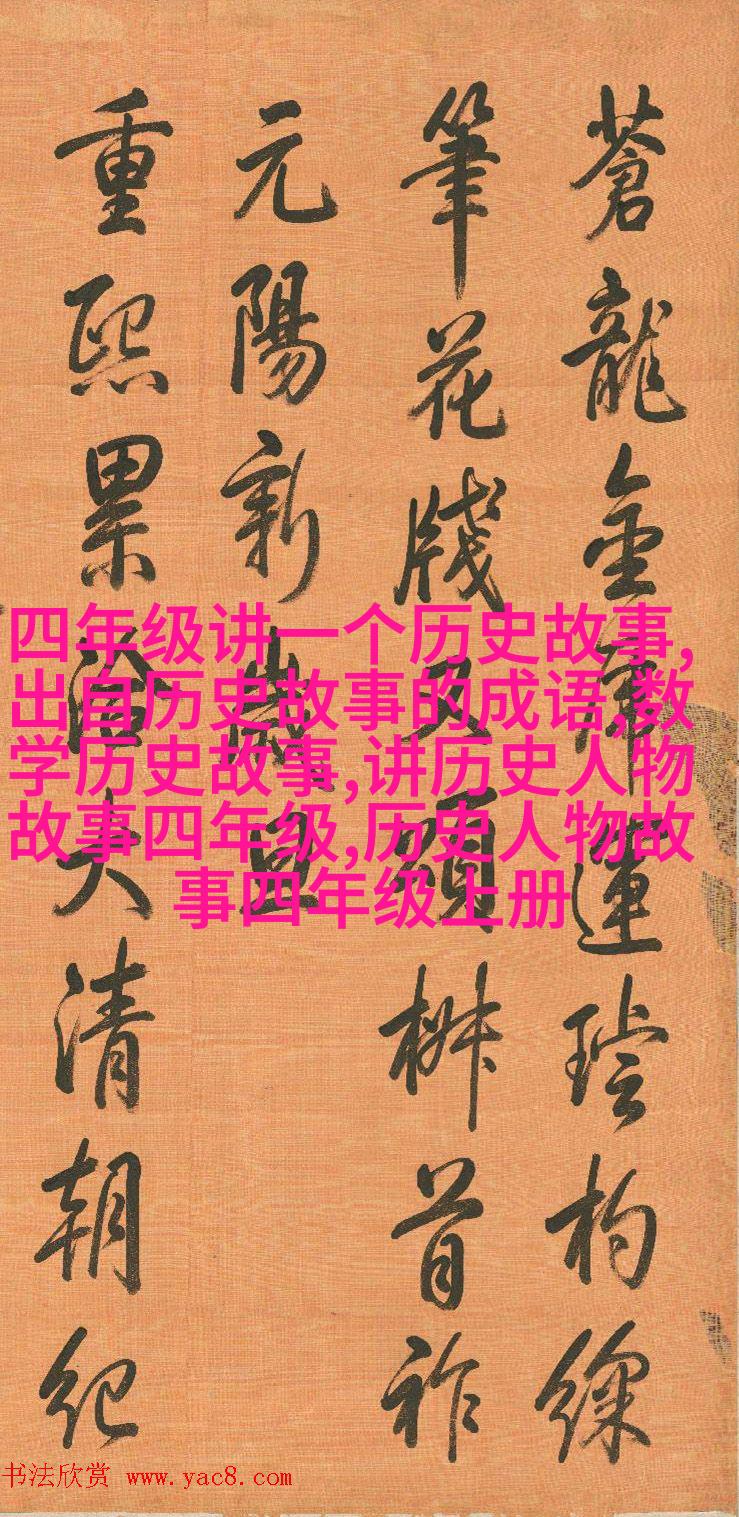 蒼龍金運杓
筆花牋又頌椒首祚
元陽新歲旦
重熙累洽大清朝紀
四年级讲一个历史故事,
出自历史故事的成语,数
学历史故事,讲历史人物
故事四年级,历史人物故
事四年级上册
书法欣赏 www.yac8.com